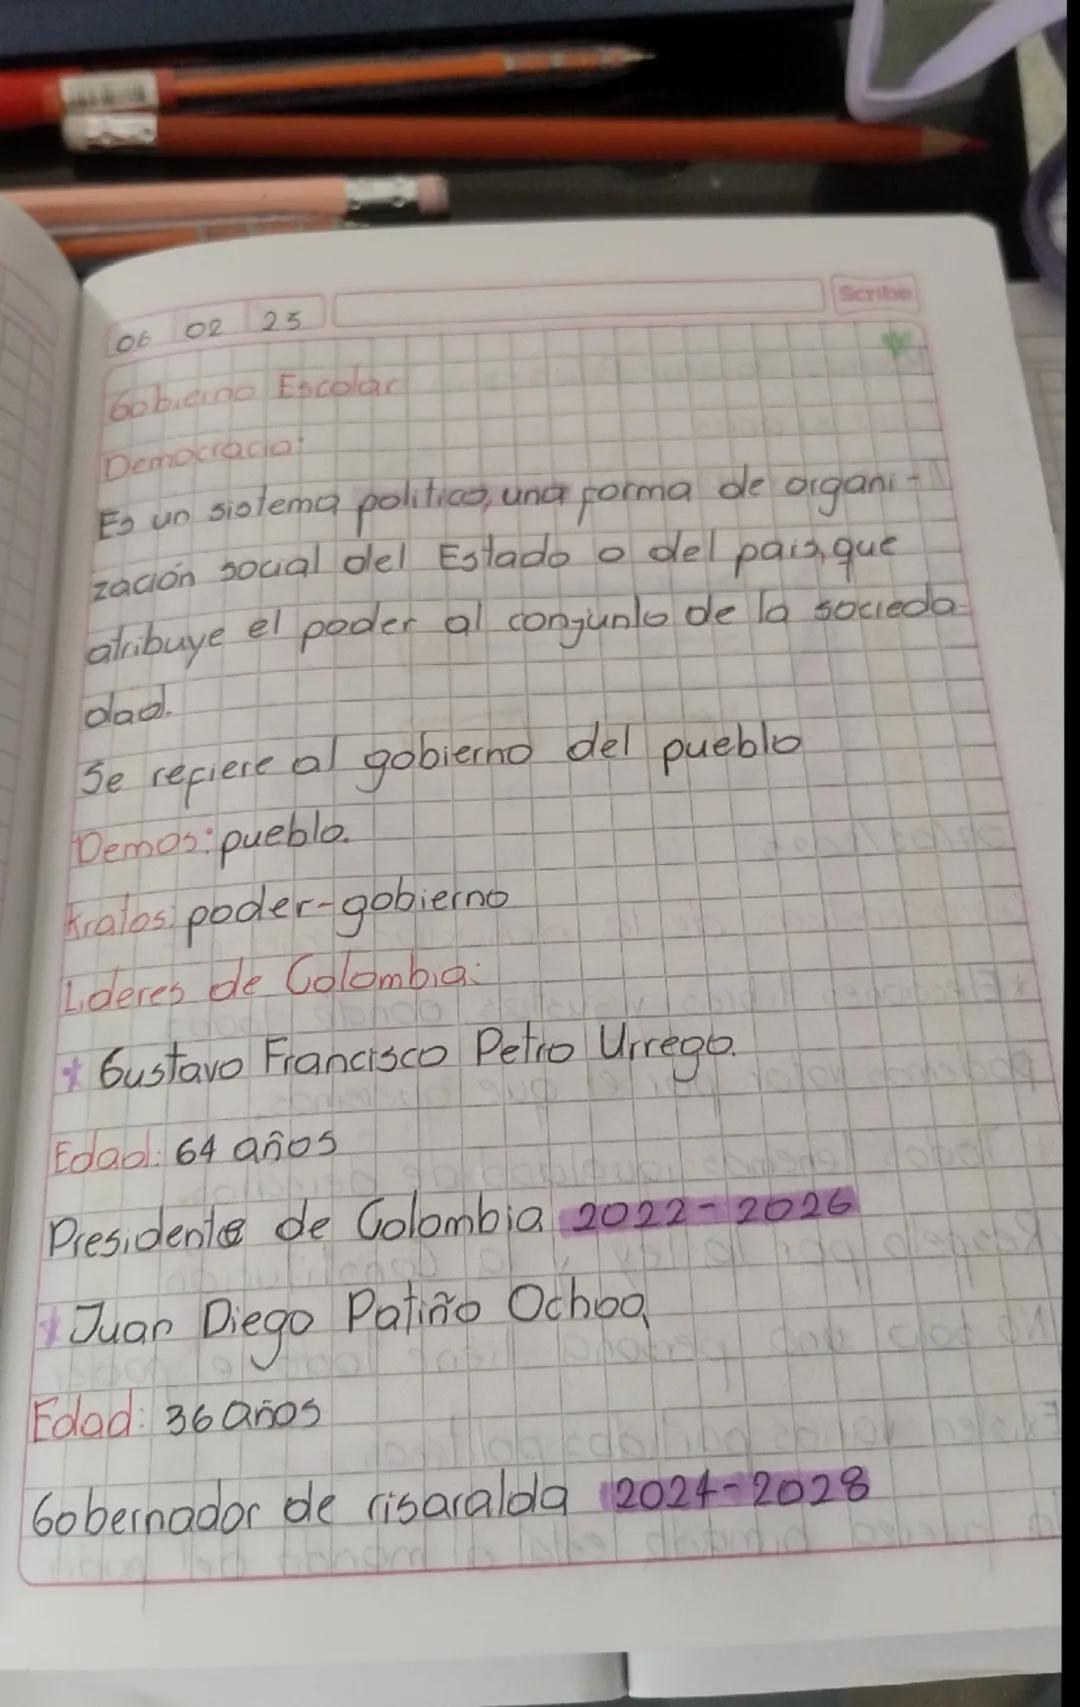 Scribe
06 02 25
Gobierno Escolar
Democracia:
Es un sistema politico, una forma de organi-
zación social del Estado o del pais, que
atribuye el poder al conjunto de la socieda-
dad.
Se refiere al gobierno del pueblo
Demos: pueblo.
Kratos: poder-gobierno
Lideres de Colombia:
* Gustavo Francisco Petro Urrego.
Edad: 64 años
Presidente de Colombia 2022-2026
* Juan Diego Patiño Ochoa
Edad: 36 años
Gobernador de risaralda 2024-2028